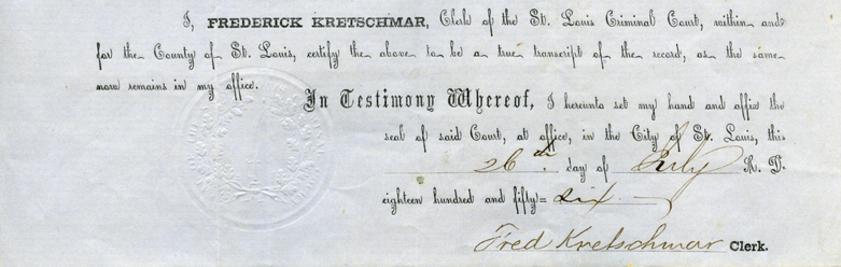 I, FREDERICK KRETSCHMAR, Clerk of the St. Louis Criminal Court, within and
for the County of St. Louis, certify the above to be a true transcript of the record, as the same
now remains in my office.
In Testimony Whereof, I hereunto set my hand and affix the
seal of said Court, at office, in the City of St. Louis, this
26th day of July A. D.
eighteen hundred and fifty=six.
Fred Kretschmar Clerk.